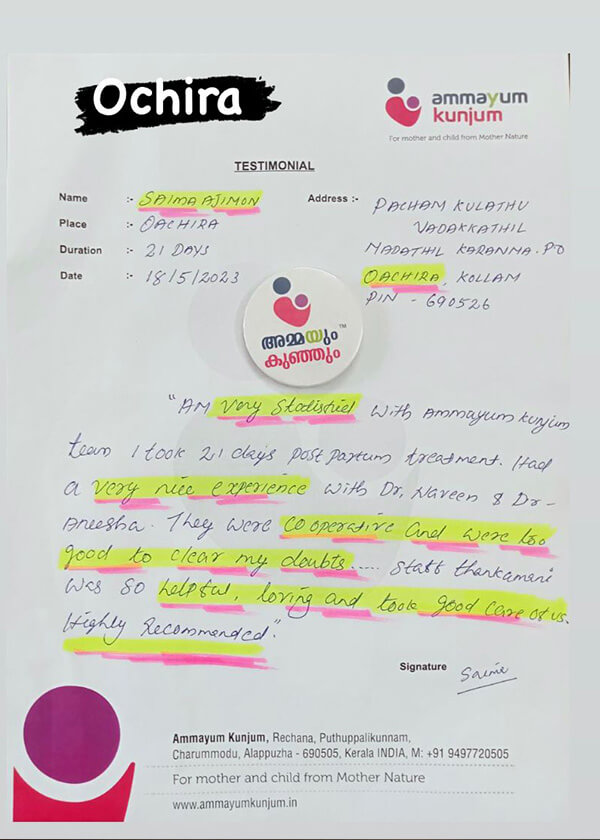 Ochira
ammayum
kunjum
For mother and child from Mother Nature
TESTIMONIAL
Name :- SAIMA AJIMON
Place :- OACHIRA
Duration :- 21 DAYS
Date :- 18/5/2023
Address :- PACHAM KULATHU
VADAKKATHIL
MADATHIL KARANMA. P.O
OACHIRA, KOLLAM
PIN - 690526
അമ്മയും TM
കുഞ്ഞും
"AM very Stadistied with Ammayum kunjum
team I took 21 days post partum treatment. Had
a very nice experience with Dr, Naveen & Dr-
Aneesha. They were cooperative and were too
good to clear my doubts.... staff thankamani
was so helpful, loving and took good care of us.
Highly Recommended."
Signature Saima
Ammayum Kunjum, Rechana, Puthuppalikunnam,
Charummodu, Alappuzha - 690505, Kerala INDIA, M: +91 9497720505
For mother and child from Mother Nature
www.ammayumkunjum.in